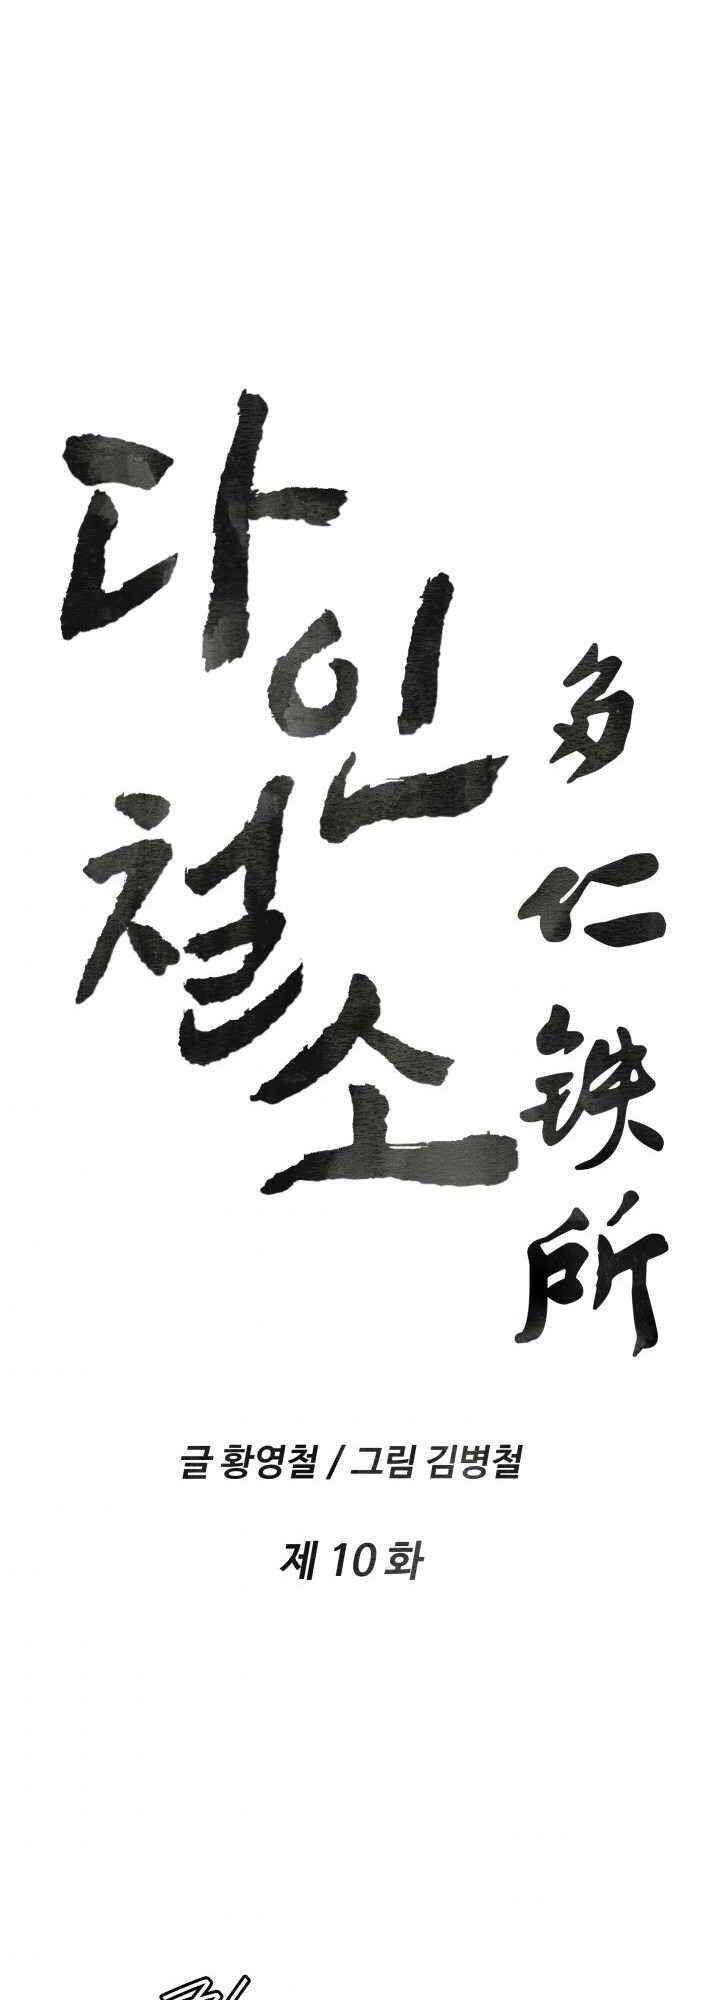 다인
철소
多仁鉄所
글 황영철 / 그림 김병철
제 10 화